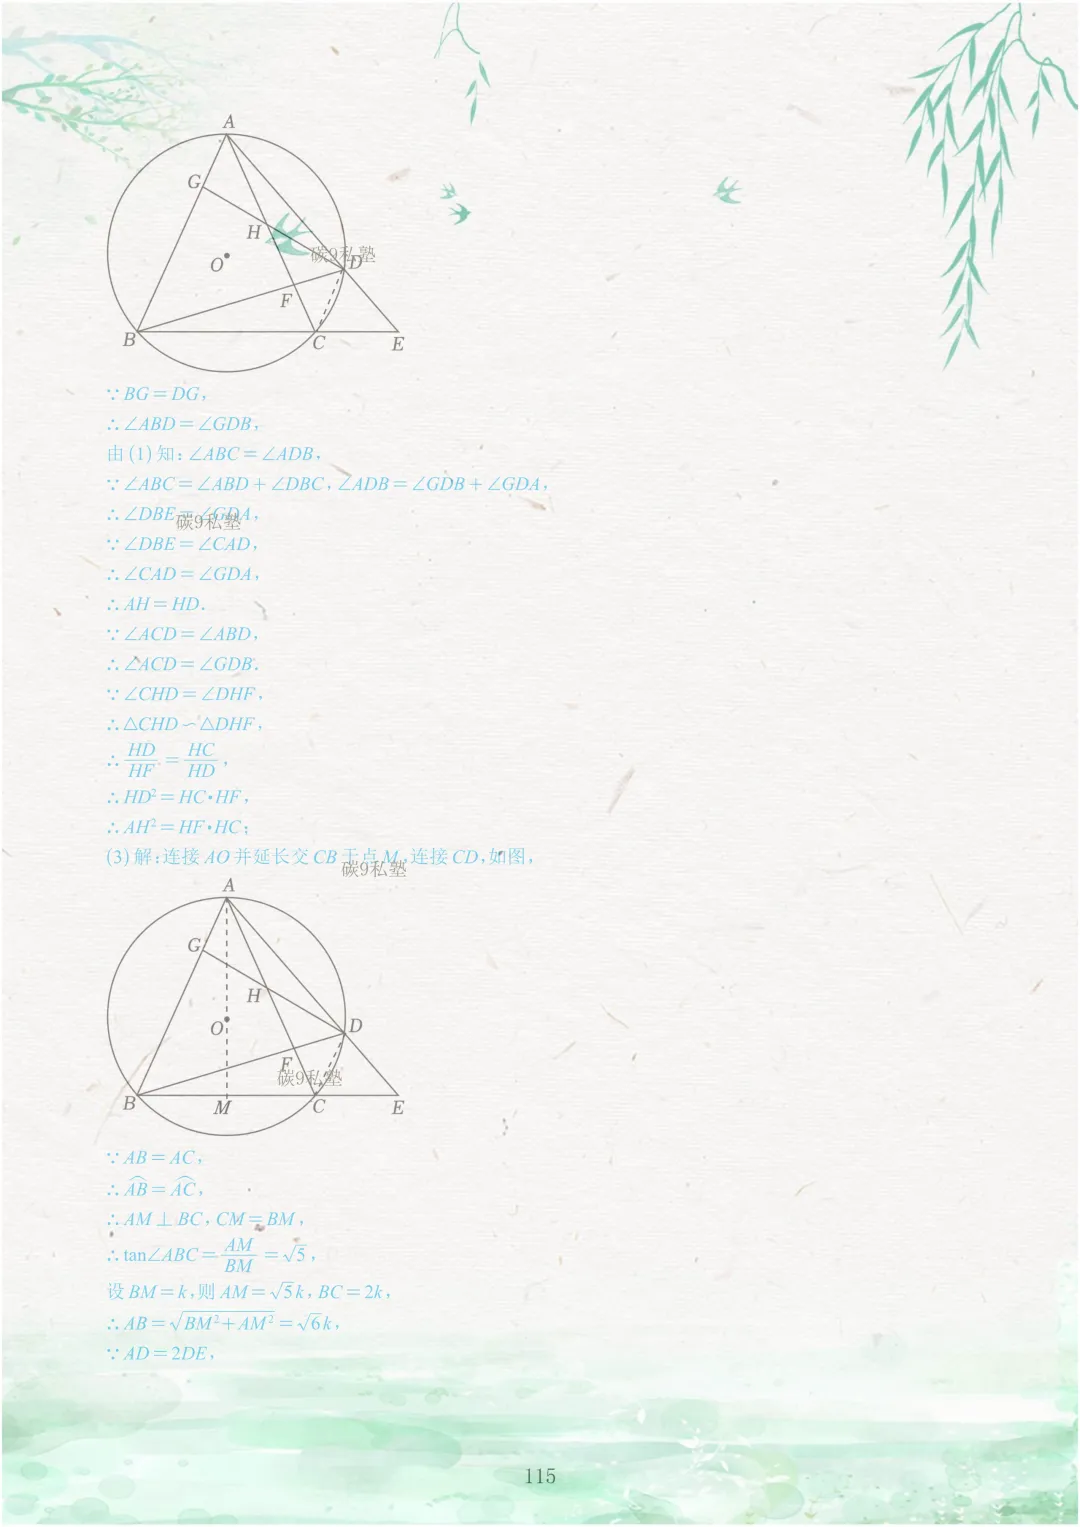 A
G
H
碳9私塾
O
D
F
B
C
E
∵BG=DG,
∴∠ABD=∠GDB,
由(1)知:∠ABC=∠ADB,
∵∠ABC=∠ABD+∠DBC,∠ADB=∠GDB+∠GDA,
∴∠DBE=∠GDA,
碳9私塾
∵∠DBE=∠CAD,
∴∠CAD=∠GDA,
∴AH=HD.
∵∠ACD=∠ABD,
∴∠ACD=∠GDB.
∵∠CHD=∠DHF,
∴△CHD∽△DHF,
∴HD/HF=HC/HD,
∴HD²=HC·HF,
∴AH²=HF·HC;
(3)解:连接AO并延长交CB于点M,连接CD,如图,
碳9私塾
A
G
H
O
D
F
碳9私塾
B
M
C
E
∵AB=AC,
∴A͡B=A͡C,
∴AM⊥BC,CM=BM,
∴tan∠ABC=AM/BM=√5,
设BM=k,则AM=√5k,BC=2k,
∴AB=√(BM²+AM²)=√6k,
∵AD=2DE,
115